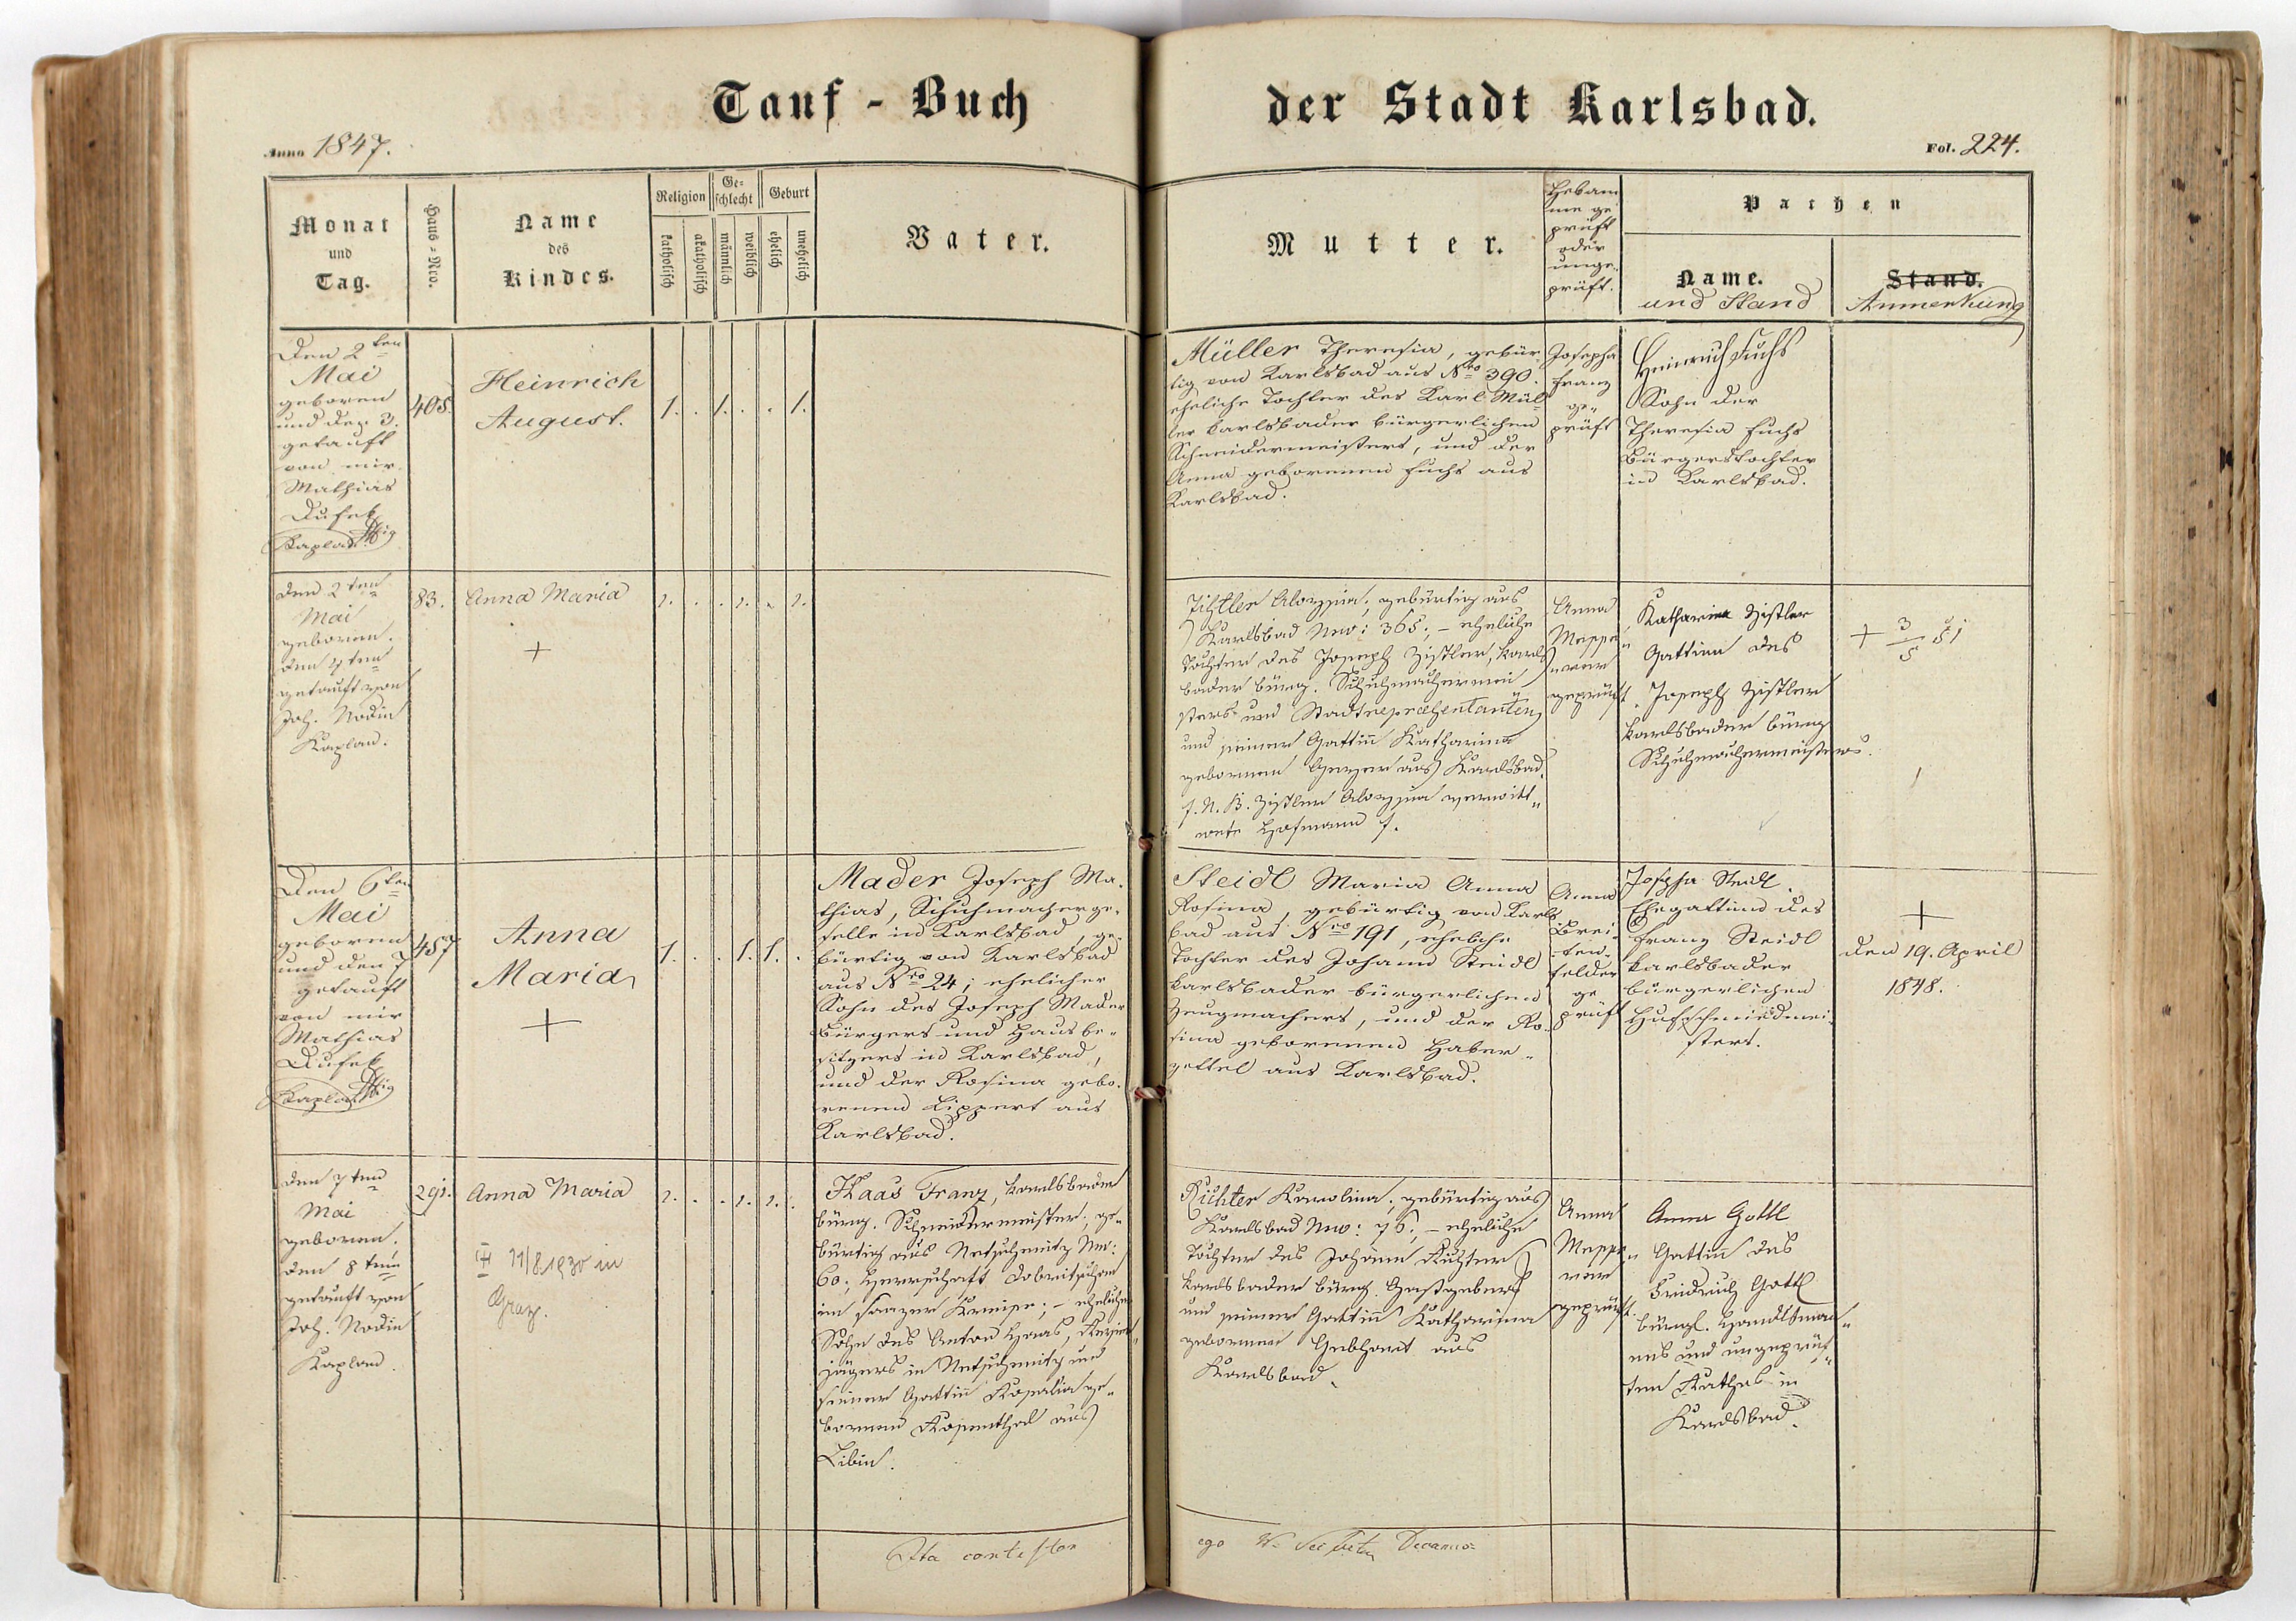 Tauf - Buch der Stadt Karlsbad.
Anno 1847.
Fol. 224.
Monat
und
Tag.
Haus-Nro.
Name
des
Kindes.
Religion
katholisch
akatholisch
Geschlecht
männlich
weiblich
Geburt
ehelich
unehelich
Vater.
Mutter.
Hebam
me ge
prüft
oder
unge-
prüft.
Pathen
Name.
und Stand
Stand.
Anmerkung
Den 2ten
Mai
geboren
und den 3.
getauft
von mir
Mathias
Dufek
Kaplan
405.
Heinrich
August.
1. . 1. . . 1.
Müller Theresia, gebür
tig von Karlsbad aus Nro 390.
eheliche Tochter des Karl Mül
ler Karlsbader bürgerlichen
Schneidermeisters, und der
Anna geborenen Fuchs aus
Karlsbad.
Josepha
Franz
ge-
prüft
Heinrich Fuchs
Sohn der
Theresia Fuchs
Bürgerstochter
in Karlsbad.
den 2ten
Mai
geboren.
den 4ten
getauft von
Joh. Nodin
Kaplan.
83.
Anna Maria
+
1. . . 1. . 1.
Zistler Aloysia, gebürtig aus
Karlsbad Nro: 365; – eheliche
Tochter des Joseph Zistler, Karls
bader bürg. Schuhmachermei
sters und Stadtrepræsentanten
und seiner Gattin Katharina
gebornen aus Karlsbad.
N. B. Zistler Aloysia verwitt-
wete Hofmann
Anna
geprüft.
Katharina Zistler
Gattinn des
Joseph Zistler
Karlsbader bürg
Schuhmachermeisters.
+ 3/5 51
Den 6ten
Mai
geboren
und den 7
getauft
von mir
Mathias
Dufek
Kaplan
457
Anna
Maria
+
1. . . 1. 1. .
Mader Joseph Ma-
thias, Schuhmacherge-
selle in Karlsbad, ge-
bürtig von Karlsbad
aus Nro 24; ehelicher
Sohn des Joseph Mader
Bürgers und Hausbe-
sitzers in Karlsbad,
und der Rosina gebo-
renen Lippert aus
Karlsbad.
Steidl Maria Anna
Rosina, gebürtig von Karls
bad aus Nro 191, eheliche
Tochter des Johann Steidl
Karlsbader bürgerlichen
Zeugmachers, und der Ro-
sina geborenen Haber-
zettel aus Karlsbad.
Anna
Brei-
ten-
felder
ge
prüft
Josepha Steidl
Ehegattin des
Franz Steidl
Karlsbader
bürgerlichen
Hufschmiedmei-
sters.
+
den 19. April
1848.
den 7ten
Mai
geboren.
den 8ten
getauft von
Joh. Nodin
Kaplan.
291.
Anna Maria
11/8 1930 in
Graz.
1. . . 1. 1. .
Haas Franz, Karlsbader
bürg. Schneidermeister, ge-
bürtig aus Netschemitz Nro:
60; Herrschaft Dobritschan
im Saazer Kreise; – ehelicher
Sohn des Anton Haas, Revier-
jägers in Netschemitz und
seiner Gattin Rosalia ge-
bornen Rosenthal aus
Libin.
Richter Karolina, gebürtig aus
Karlsbad Nro: 76; – eheliche
Tochter des Johann Richter
Karlsbader bürg. Gastgebers
und seiner Gattin Katharina
gebornen Gebhart aus
Karlsbad.
Anna
geprüft.
Anna Gottl
Gattin des
Friedrich Gottl
bürgl. Handlsman-
nes und ungeprüf-
ten Rathes in
Karlsbad.
Ita contestor ego Decanus